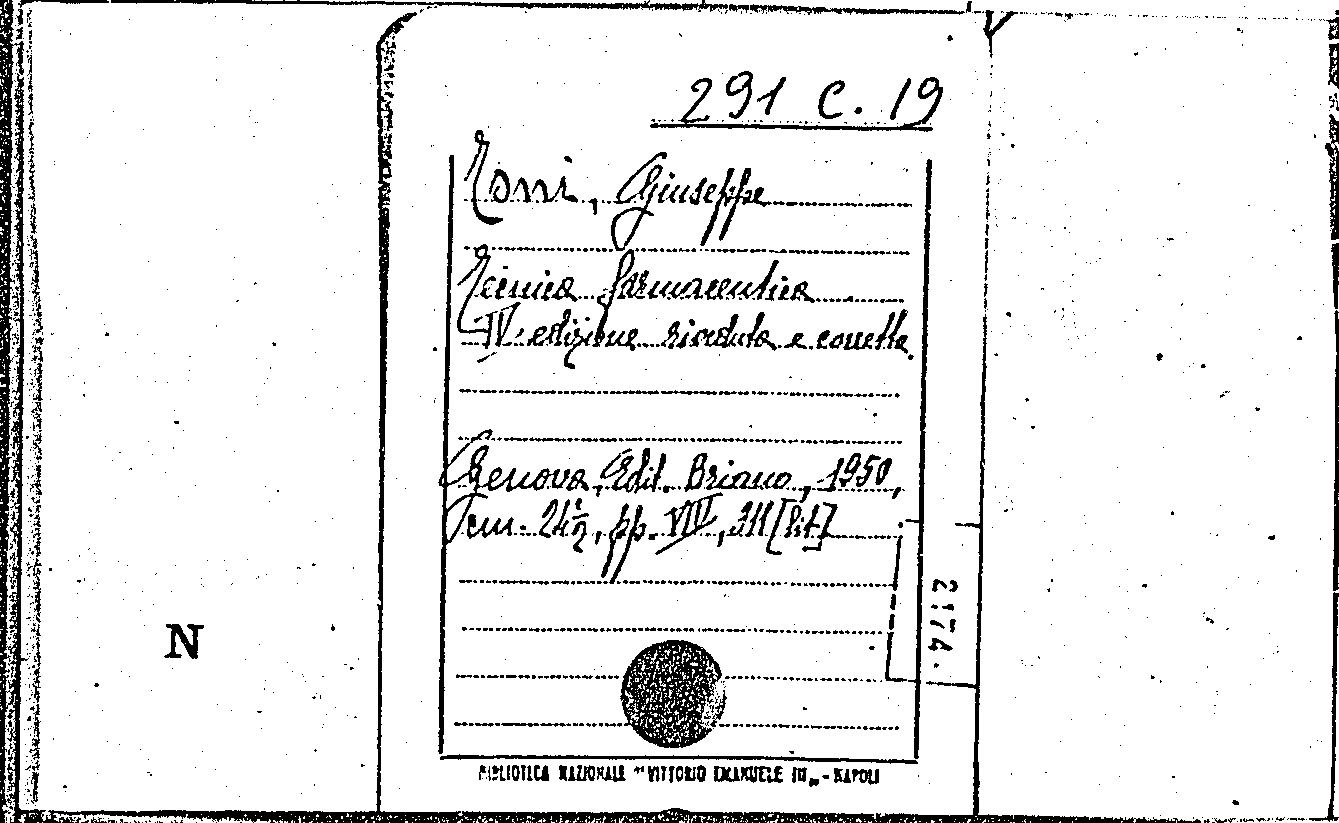 291 C. 19
Toni, Giuseppe
Tecnica farmaceutica
IV edizione riveduta e corretta.
Genova, Edit. Briano, 1950,
cm. 24½, pp. VIII, 311 [lit]
2174.
N
BIBLIOTECA NAZIONALE "VITTORIO EMANUELE III„ - NAPOLI